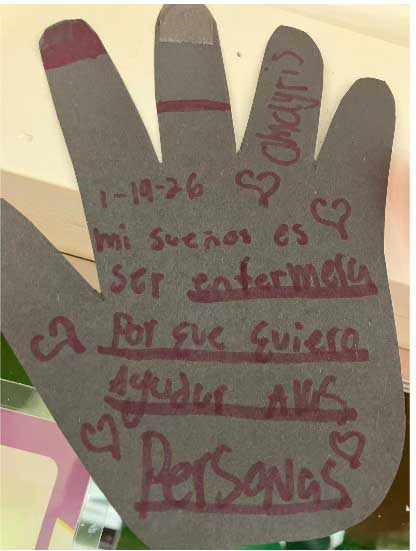 omayris
1-19-26
mi sueños es
ser enfermera
Por que quiero
Ayudar Alas
Personas